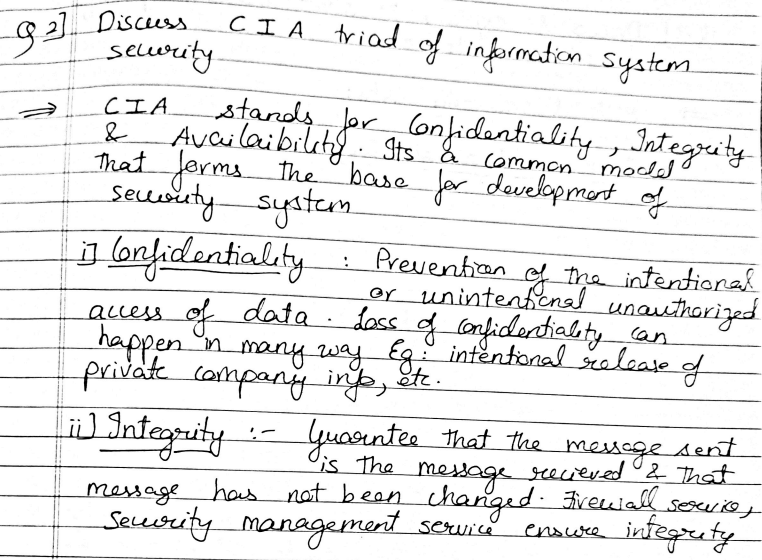 Q 2] Discuss CIA triad of information system
security
⇒ CIA stands for Confidentiality, Integrity
& Availaibility. Its a common model
that forms the base for development of
security system
i] Confidentiality : Prevention of the intentional
or unintentional unauthorized
access of data. Loss of confidentiality can
happen in many way Eg: intentional release of
private company info, etc.
ii] Integrity :- Guarntee that the message sent
is the message recieved & that
message has not been changed. Firewall service,
Security management service ensure integrity